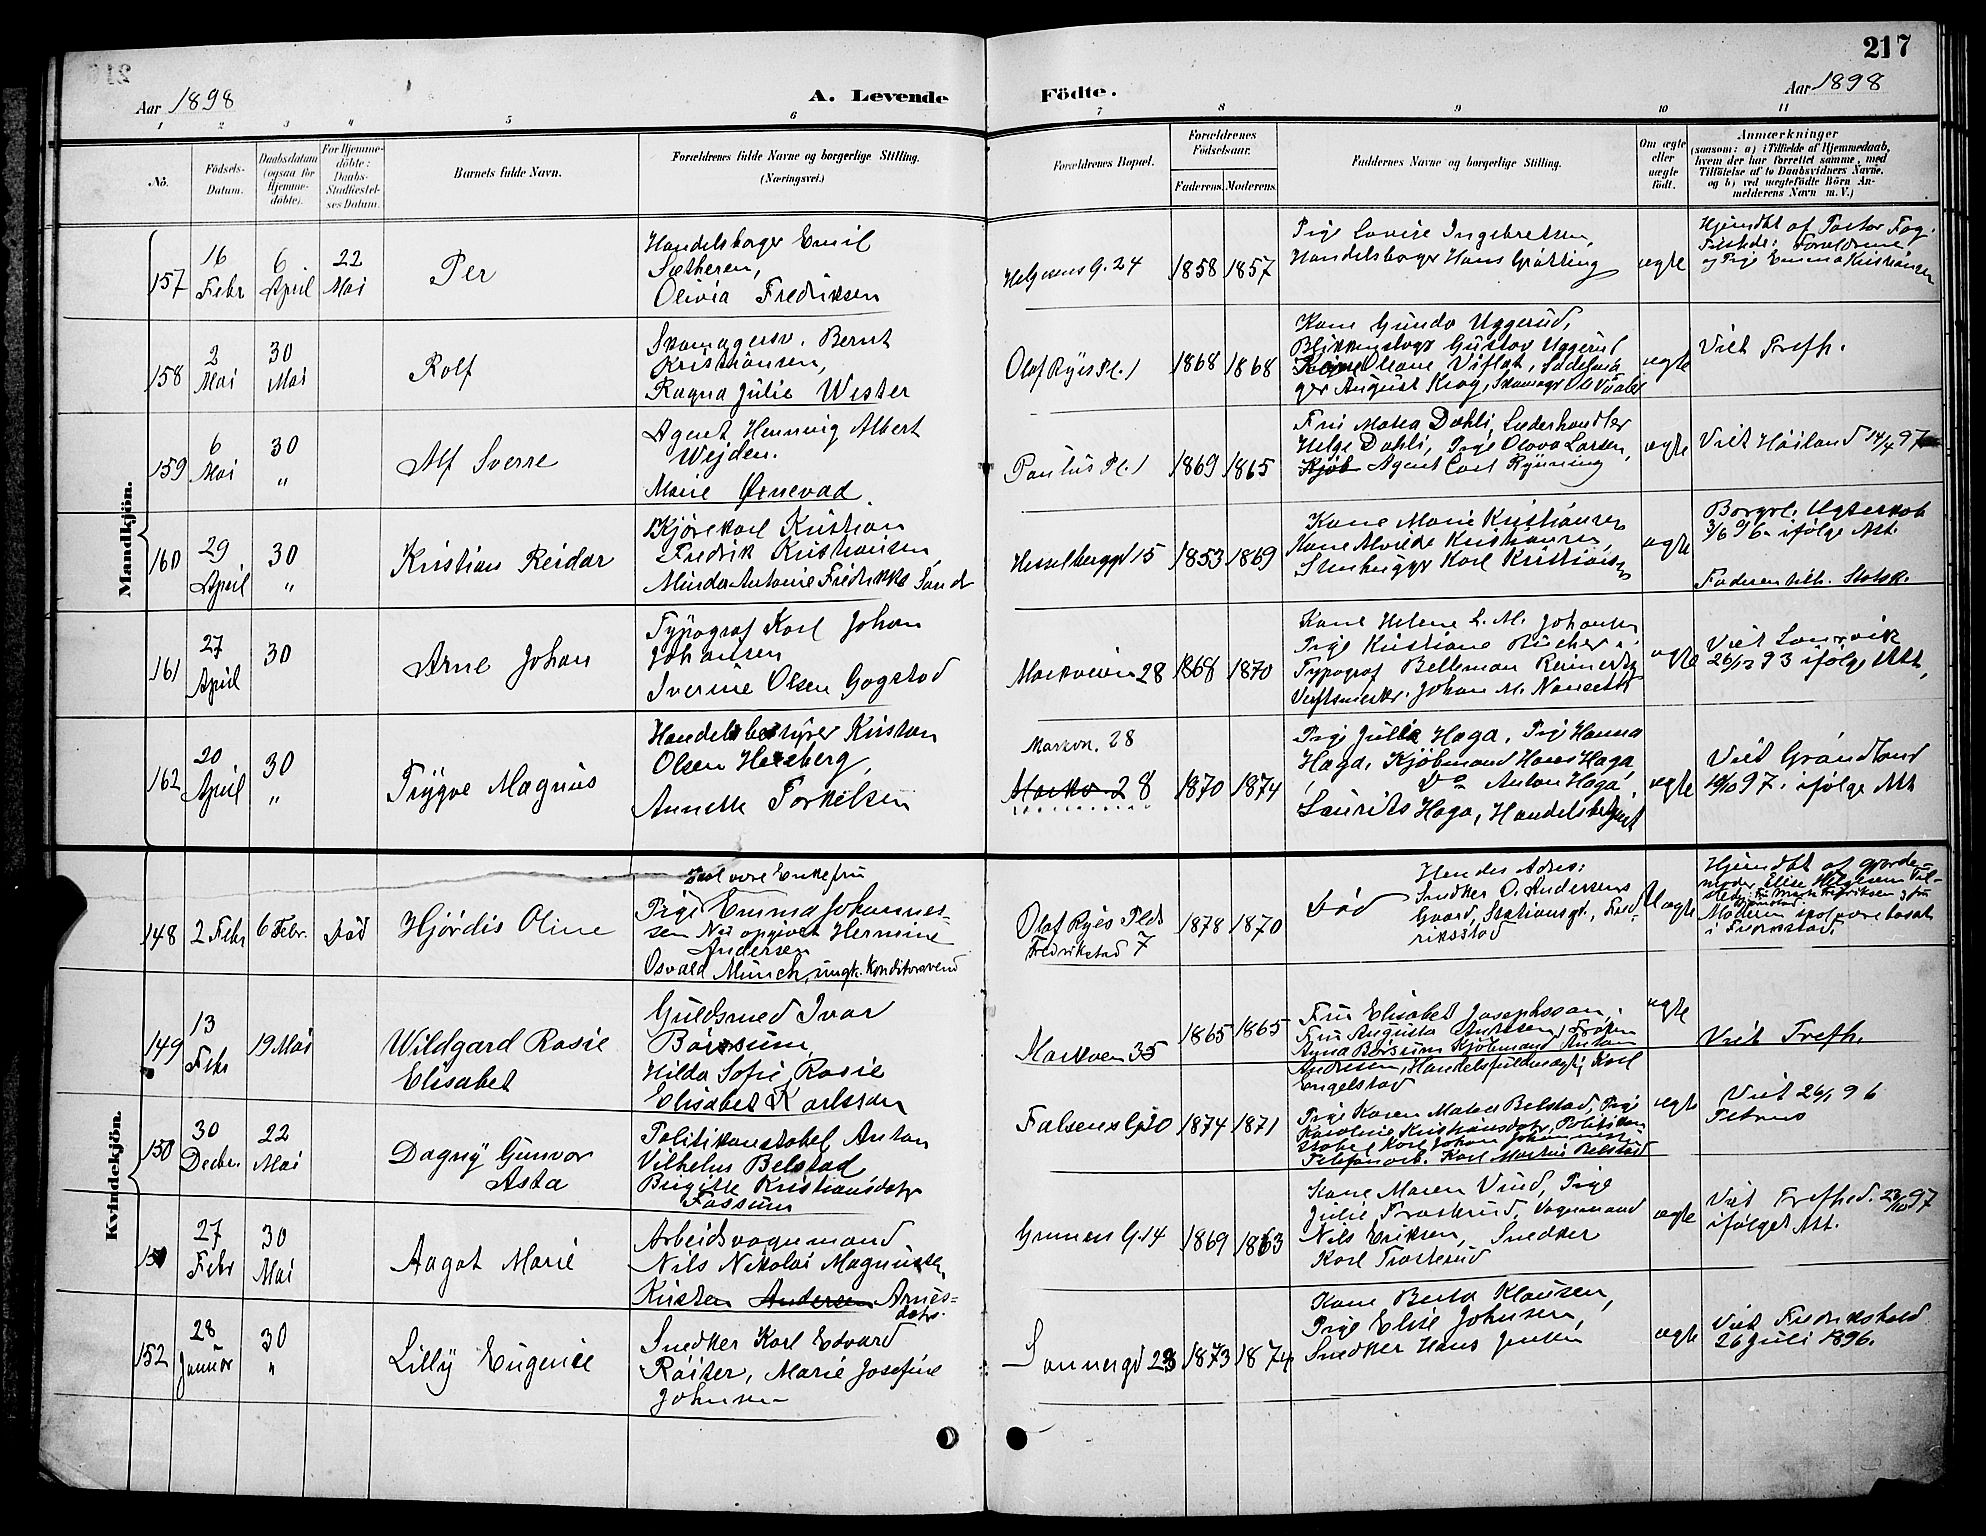 217
Aar 1898
A. Levende Födte.
Aar 1898
1 2 3 4 5 6 7 8 9 10 11
No.
Födsels-
Datum.
Daabsdatum
(ogsaa for
Hjemme-
döbte).
For Hjemme-
döbte:
Daabs-
Stadfæstel-
ses Datum.
Barnets fulde Navn.
Forældrenes fulde Navne og borgerlige Stilling.
(Næringsvei.)
Forældrenes Bopæl.
Forældrenes
Födselsaar.
Faderens. Moderens.
Faddernes Navne og borgerlige Stilling.
Om ægte
eller
uægte
født.
Anmærkninger
(saasom: a) i Tilfælde af Hjemmedaab,
hvem der har forrettet samme, med
Tilföielse af to Daabsvidners Navne,
og b) ved uægtefödte Börn An-
melderens Navn m. V.)
Mandkjön.
157
16
Febr
6
April
22
Mai
Per
Handelsborger Emil
Sætheren,
Olivia Fredriksen
Helgesens G. 24
1858 1857
Pige Lovise Ingebretsen,
Handelsborger Hans Grötting
ægte
Hjemdbt af Pastor
Forældrene
og Pige Emma Kristiansen
158
2
Mai
30
Mai
Rolf
Skomagersv. Bernt
Kristiansen,
Ragna Julie Wester
Olaf Ryes Pl. 1
1868 1868
Kone Gunda Uggerud,
Blikkenslager Gustav Uggerud
Oleane Viflat, Sadelma
ger August Krog, Skomagr Ole
ægte
Viet Trefh.
159
6
Mai
30
"
Alf Sverre
Agent Hennvig Albert
Wejden.
Marie Ørnevad.
Paulus Pl. 1
1869 1865
Fru Matea Dahli, Læderhandler
Helge Dahli, Pige Olava Larsen,
Kjöb Agent Carl Rynning
ægte
Viet Höiland 14/4 97
160
29
April
30
"
Kristian Reidar
Kjörekarl Kristian
Fredrik Kristiansen
Minda Antonie Fredrikke Sand
Hesselberggd 15
1853 1869
Kone Marie Kristiansen
Kone Alvilde Kristiansen,
Stenhugger Karl Kristiansen
ægte
Borgerl. Ægteskab
3/6 96. ifølge Att.
Faderen tilh. Statsk.
161
27
April
30
Arne Johan
Typograf Karl Johan
Johansen
Iverine Olsen Gogstad
Markveien 28
1868 1870
Kone Helene L. M. Johansen
Pige Kristiane Bücher,
Typograf Bellman
Johan M.
ægte
Viet Laurvik
26/12 93 ifølge Att,
162
20
April
30
"
Trygve Magnus
Handelsbestyrer Kristian
Olsen Herberg,
Annette Torkelsen
Markv. 28
Markv 28
1870 1874
Pige Julie Haga, Pige Hanna
Haga, Kjöbmand Hans Haga
Do Anton Haga,
Laurits Haga, Handelsbetjent
ægte
Viet Grandland
19/10 97. ifølge Att
Kvindekjön.
148
2 Febr
6 Febr.
Död
Hjördis Oline
Skal være Enkefru
Pige Emma Johannes-
sen Nu opgivet Hermine
Andersen
Osvald Münch, ungk. Konditorsvend
Olaf Ryes Plds
Fredrikstad 7
1878 1870
Död
Hendes Adres:
Snedker O. Andersens
Gaard, Stationsgt, Fred-
riksstad
Uægte
Hjemdbt af gjorde-
moder Elise
Moderen skal være
i Fredrikstad.
149
13
Febr
19 Mai
Wildgard Rosie
Elisabet
Guldsmed Ivar
Börsum,
Hilda Sofie Rosie
Elisabet Karlsson
Markveien 35
1865 1865
Fru Elisabet Josephsson,
Fru Augusta Andresen, Frøken
Anna Börsum Kjöbmand Anton
Andresen, Handelsfuldmægtig Karl
Engelstad
ægte
Viet Trefh.
150
30
Decbr.
22
Mai
Dagny Gunvor
Asta
Politikonstabel Anton
Vilhelm Belstad
Birgitte Kristiansdatr
Fossum
Falsens G. 20
1874 1871
Pige Karen Matea Belstad, Pige
Karoline Kristiansdatr, Politikon
stabel Karl Johan Johannesen
Telefonarb. Karl Martin Belstad
ægte
Viet 26/1 96
Petrus
151
27
Febr
30
Mai
Aagot Marie
Arbeidsvognmand
Nils Nikolai Magnussen,
Kirsten Andersen Arnes-
datr.
Grüners G. 14
1869 1863
Kone Maren Vrud, Pige
Julie Frosterud, Vognmand
Nils Eriksen, Snedker
Karl Frosterud
ægte
Viet Trefhed. 23/10 97
ifølge Att.
152
28
Januar
30
"
Lilly Eugenie
Snedker Karl Edvard
Roiter, Marie Josefine
Johnsen
Sannergd 23
1873 1874
Kone Berta Klausen,
Pige Elise Johnsen,
Snedker Hans Jensen
ægte
Viet Fredrikshald
26 Juli 1896.